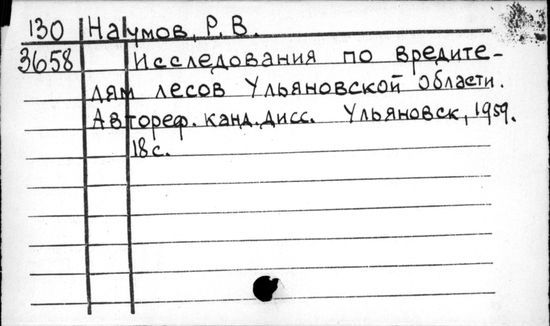 130 Наумов, Р. В.
3658 Исследования по вредите-
лям лесов Ульяновской области.
Автореф. канд. дисс. Ульяновск, 1959.
18 с.